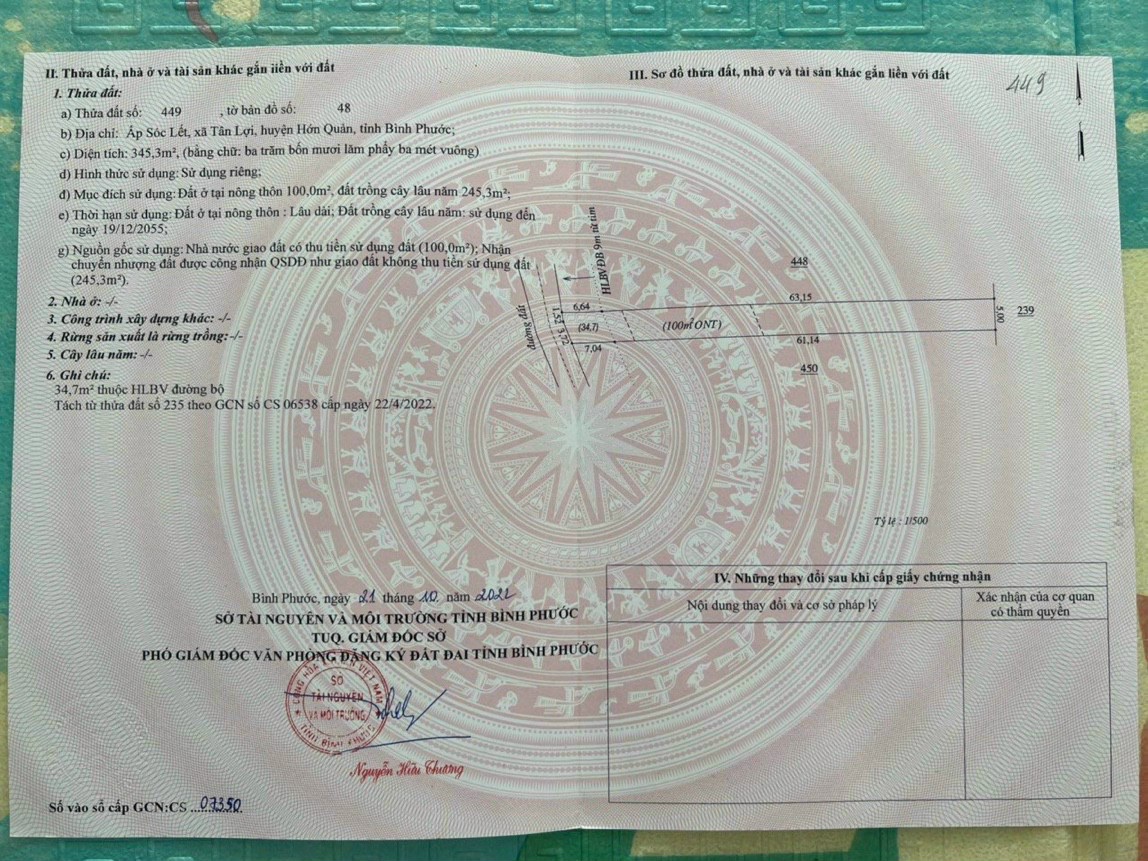 II. Thửa đất, nhà ở và tài sản khác gắn liền với đất
1. Thửa đất:
a) Thửa đất số: 449 , tờ bản đồ số: 48
b) Địa chỉ: Ấp Sóc Lết, xã Tân Lợi, huyện Hớn Quản, tỉnh Bình Phước;
c) Diện tích: 345,3m², (bằng chữ: ba trăm bốn mươi lăm phẩy ba mét vuông)
d) Hình thức sử dụng: Sử dụng riêng;
đ) Mục đích sử dụng: Đất ở tại nông thôn 100,0m², đất trồng cây lâu năm 245,3m²;
e) Thời hạn sử dụng: Đất ở tại nông thôn : Lâu dài; Đất trồng cây lâu năm: sử dụng đến
ngày 19/12/2055;
g) Nguồn gốc sử dụng: Nhà nước giao đất có thu tiền sử dụng đất (100,0m²); Nhận
chuyển nhượng đất được công nhận QSDĐ như giao đất không thu tiền sử dụng đất
(245,3m²).
2. Nhà ở: -/-
3. Công trình xây dựng khác: -/-
4. Rừng sản xuất là rừng trồng:-/-
5. Cây lâu năm: -/-
6. Ghi chú:
34,7m² thuộc HLBV đường bộ
Tách từ thửa đất số 235 theo GCN số CS 06538 cấp ngày 22/4/2022.
Bình Phước, ngày 21 tháng 10 năm 2022
SỞ TÀI NGUYÊN VÀ MÔI TRƯỜNG TỈNH BÌNH PHƯỚC
TUQ. GIÁM ĐỐC SỞ
PHÓ GIÁM ĐỐC VĂN PHÒNG ĐĂNG KÝ ĐẤT ĐAI TỈNH BÌNH PHƯỚC
SỞ
TÀI NGUYÊN
VÀ MÔI TRƯỜNG
TỈNH BÌNH PHƯỚC
Nguyễn Hữu Chương
Số vào sổ cấp GCN:CS 07350
III. Sơ đồ thửa đất, nhà ở và tài sản khác gắn liền với đất
449
HLBVĐB 9m từ tim
đường đất
448
6,64
63,15
1,52
3,72
(34,7)
(100m² ONT)
5,00
239
7,04
61,14
450
Tỷ lệ : 1/500
IV. Những thay đổi sau khi cấp giấy chứng nhận
Nội dung thay đổi và cơ sở pháp lý
Xác nhận của cơ quan
có thẩm quyền